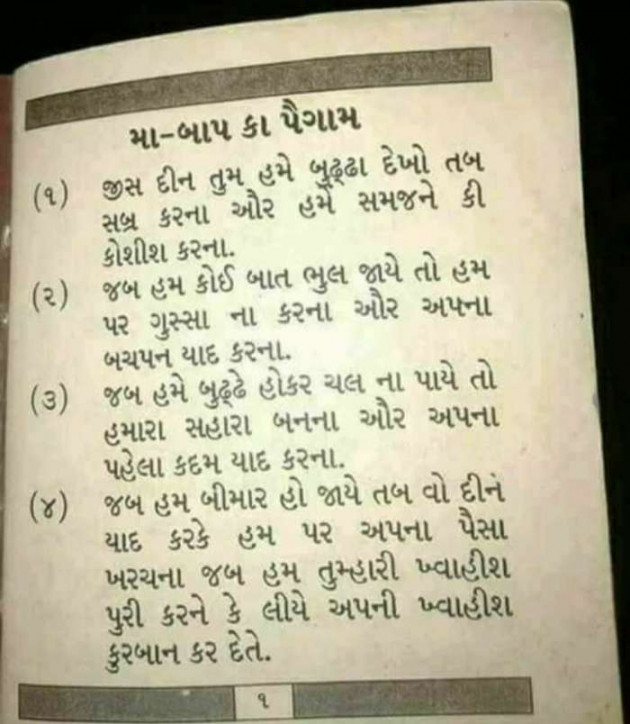 મા-બાપ કા પૈગામ
(૧) જીસ દીન તુમ હમે બુઢ્ઢા દેખો તબ
સબ્ર કરના ઔર હમેં સમજને કી
કોશીશ કરના.
(૨) જબ હમ કોઈ બાત ભુલ જાયે તો હમ
પર ગુસ્સા ના કરના ઔર અપના
બચપન યાદ કરના.
(૩) જબ હમે બુઢ્ઢે હોકર ચલ ના પાયે તો
હમારા સહારા બનના ઔર અપના
પહેલા કદમ યાદ કરના.
(૪) જબ હમ બીમાર હો જાયે તબ વો દીનં
યાદ કરકે હમ પર અપના પૈસા
ખરચના જબ હમ તુમ્હારી ખ્વાહીશ
પુરી કરને કે લીયે અપની ખ્વાહીશ
કુરબાન કર દેતે.
૧